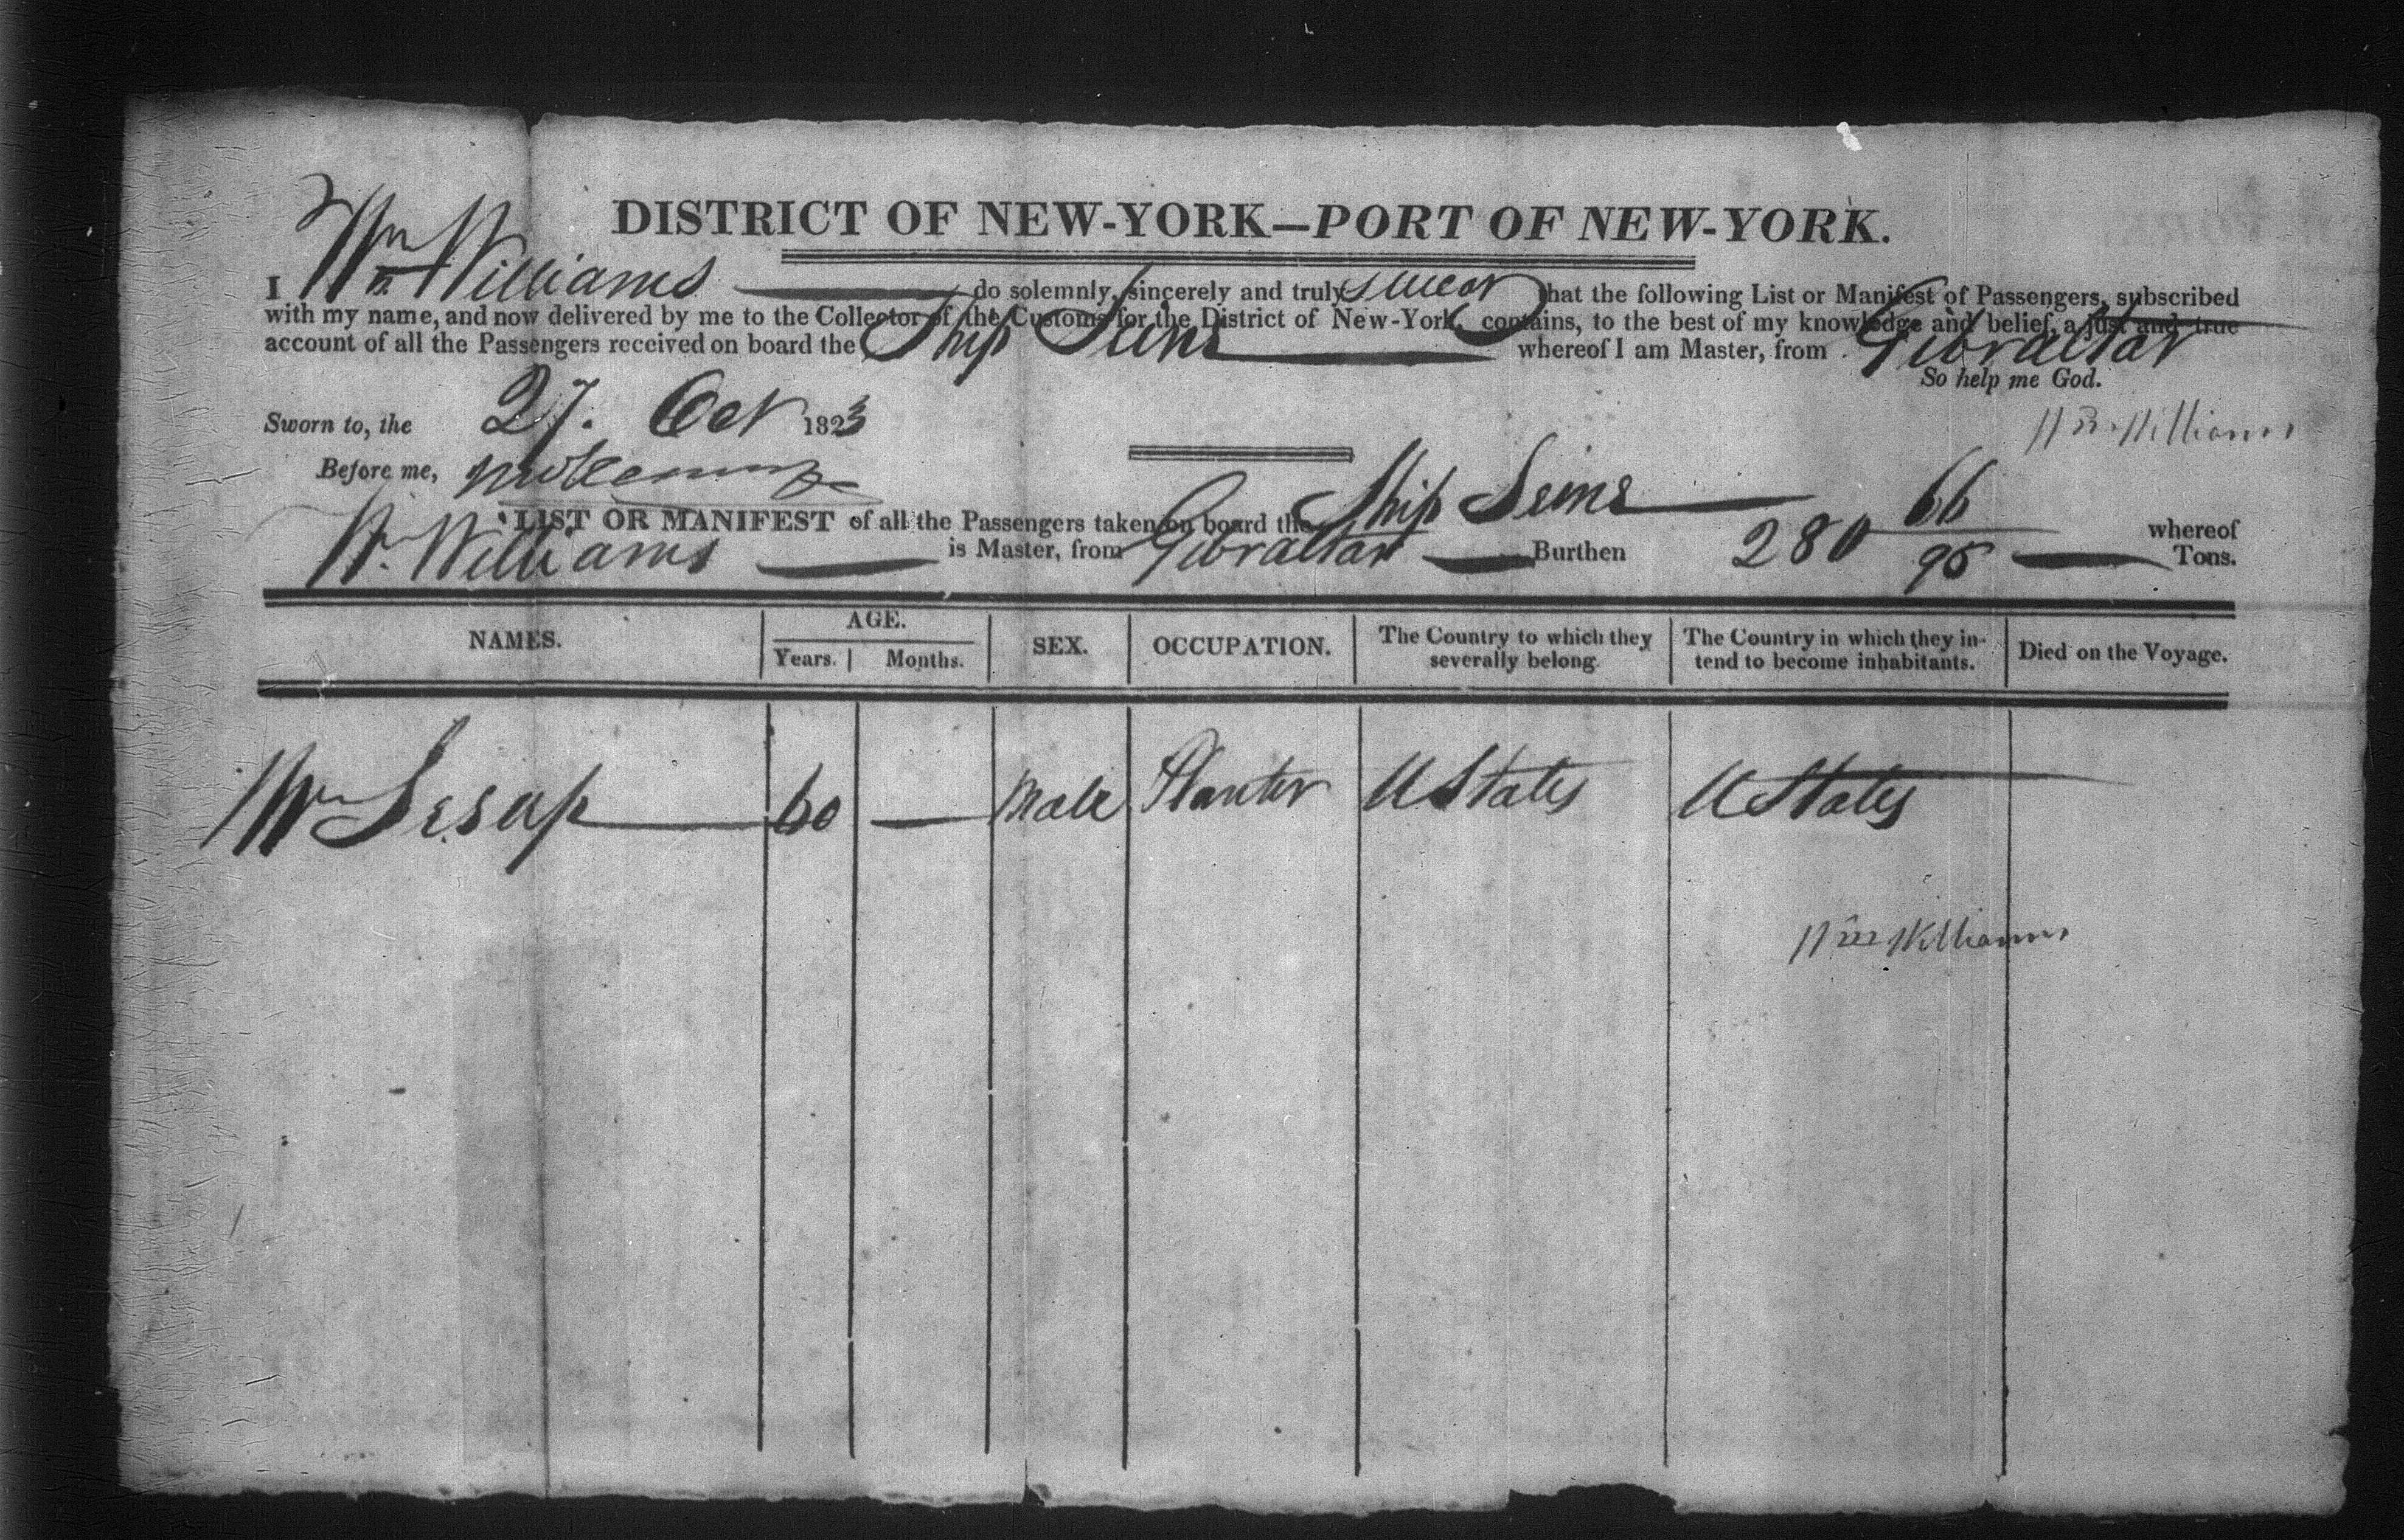 DISTRICT OF NEW-YORK—PORT OF NEW-YORK.
I Wm Williams do solemnly, sincerely and truly swear that the following List or Manifest of Passengers, subscribed
with my name, and now delivered by me to the Collector of the Customs for the District of New-York, contains, to the best of my knowledge and belief, a just and true
account of all the Passengers received on board the Ship Seine whereof I am Master, from Gibraltar
So help me God.
Sworn to, the 27. Oct 1823
Wm Williams
Before me,
LIST OR MANIFEST of all the Passengers taken on board the Ship Seine whereof
Wm Williams is Master, from Gibraltar Burthen 280 66/95 Tons.
NAMES. AGE. Years. Months. SEX. OCCUPATION. The Country to which they severally belong. The Country in which they intend to become inhabitants. Died on the Voyage.
Wm 60 — Male Planter U States U States
Wm Williams